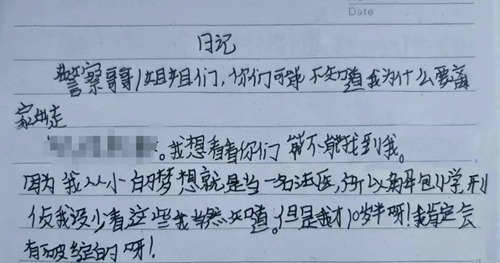 Date
日记
警察哥哥/姐姐们,你们可能不知道我为什么要离
家出走
。我想看看你们能不能找到我。
因为我从小的梦想就是当一名法医,所以解包学刑
侦我没少看这些我当然知道。但是我才10岁半呀!我肯定会
有破绽的呀!